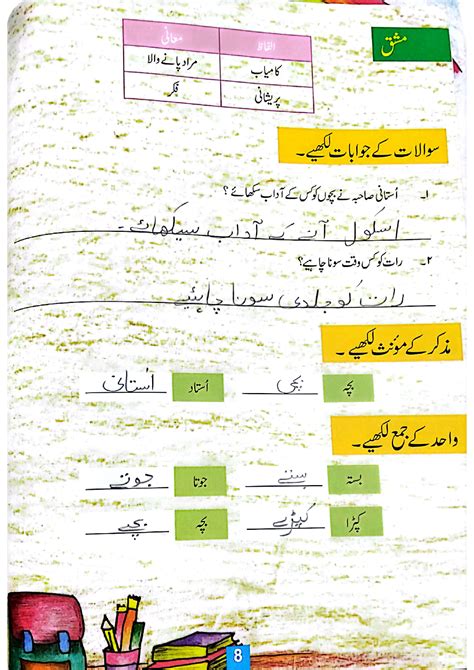 مشق
الفاظ معانی
کامیاب مراد پانے والا
پریشانی فکر
سوالات کے جوابات لکھیے۔
۱۔ اُستانی صاحبہ نے بچّوں کو کس کے آداب سکھائے ؟
اسکول آنے کے آداب سیکھائے۔
۲۔ رات کو کس وقت سونا چاہیے؟
رات کو جلدی سونا چاہئیے
مذکر کے مؤنث لکھیے ۔
بچّہ بچی اُستاد اُستانی
واحد کے جمع لکھیے۔
بستہ بستے جوتا جوتے
کپڑا کپڑے بچّہ بچے
8